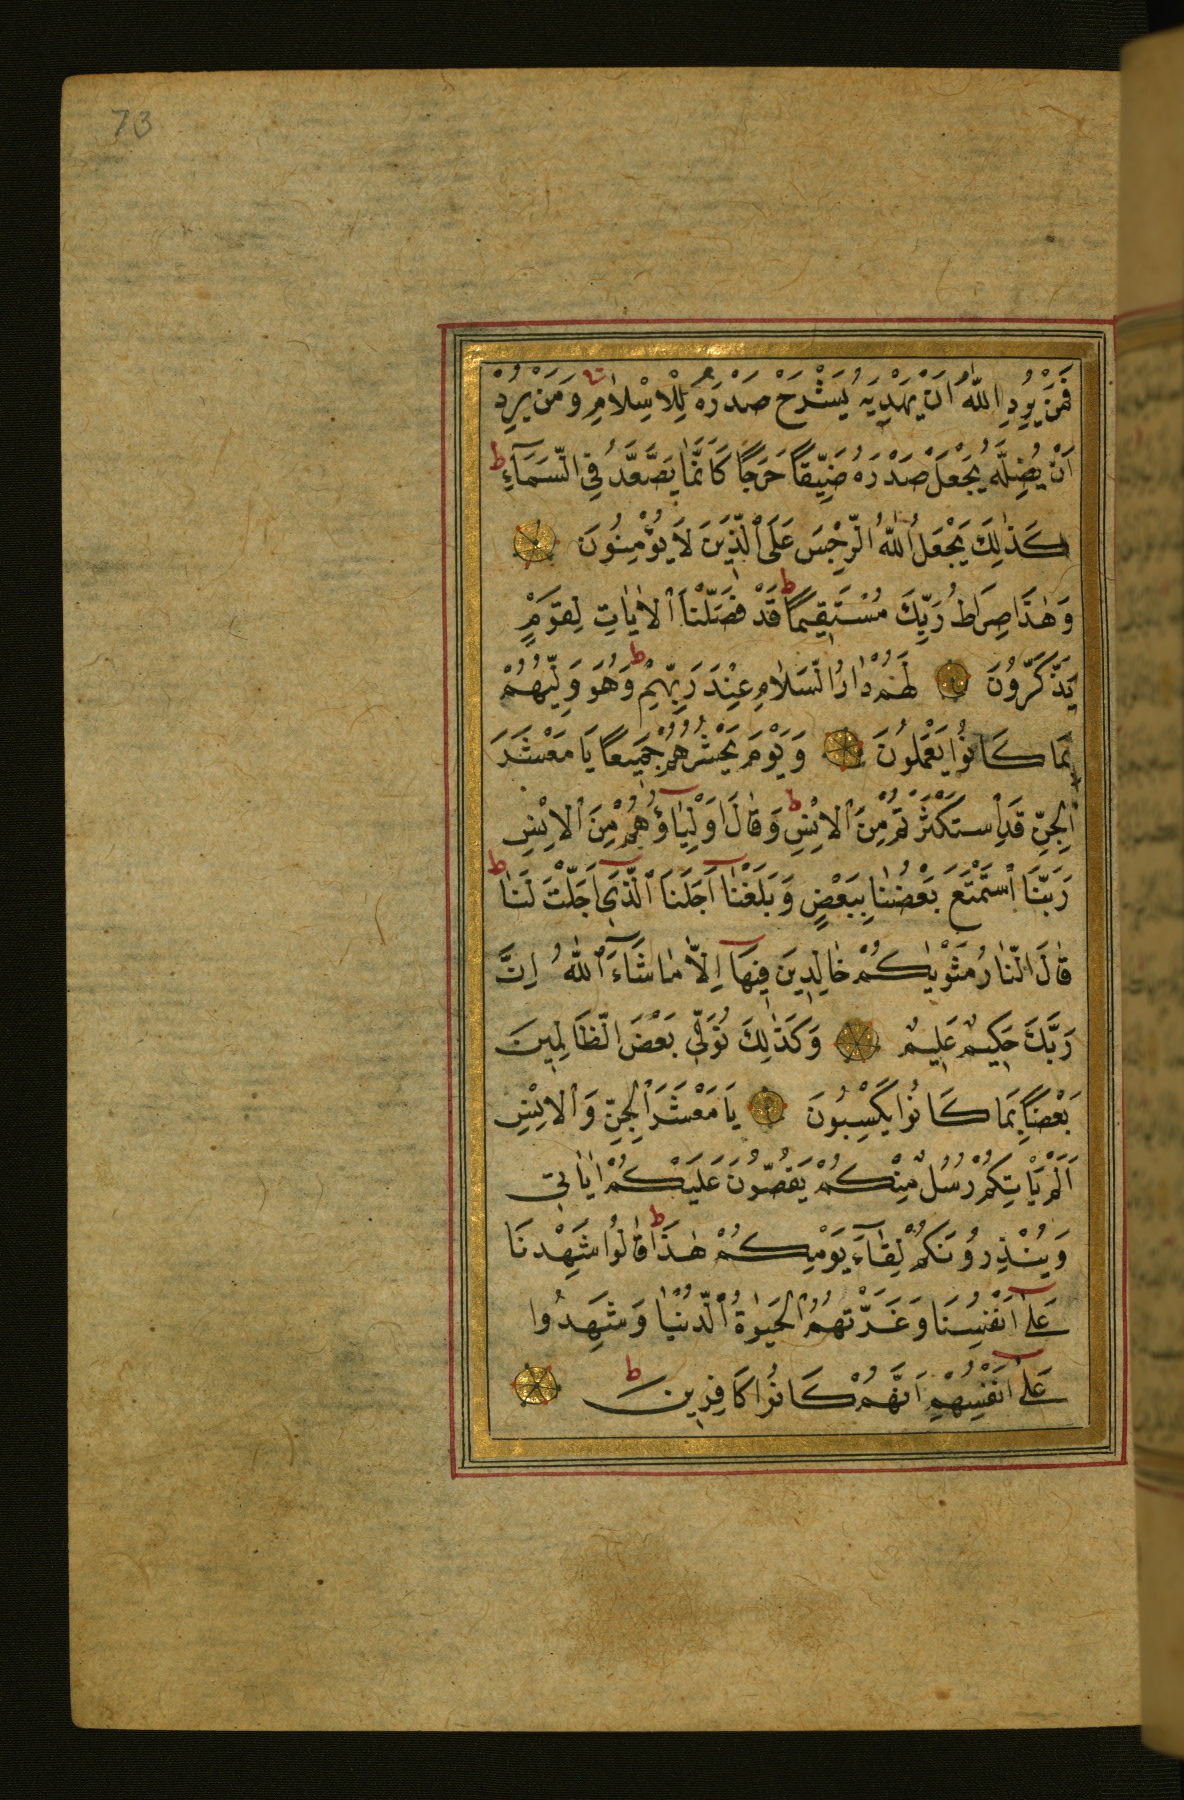 73
فَمَنْ يُرِدِ اللّٰهُ اَنْ يَهْدِيَهُ يَشْرَحْ صَدْرَهُ لِلْاِسْلَامِ وَمَنْ يُرِدْ
اَنْ يُضِلَّهُ يَجْعَلْ صَدْرَهُ ضَيِّقًا حَرَجًا كَاَنَّمَا يَصَّعَّدُ فِي السَّمَآءِ ط
كَذٰلِكَ يَجْعَلُ اللّٰهُ الرِّجْسَ عَلَى الَّذِينَ لَا يُؤْمِنُونَ
وَهٰذَا صِرَاطُ رَبِّكَ مُسْتَقِيمًا ط قَدْ فَصَّلْنَا الْاٰيَاتِ لِقَوْمٍ
يَذَّكَّرُونَ لَهُمْ دَارُ السَّلَامِ عِنْدَ رَبِّهِمْ ط وَهُوَ وَلِيُّهُمْ
بِمَا كَانُوا يَعْمَلُونَ وَيَوْمَ يَحْشُرُهُمْ جَمِيعًا يَا مَعْشَرَ
الْجِنِّ قَدِ اسْتَكْثَرْتُمْ مِنَ الْاِنْسِ ط وَقَالَ اَوْلِيَآؤُهُمْ مِنَ الْاِنْسِ
رَبَّنَا اسْتَمْتَعَ بَعْضُنَا بِبَعْضٍ وَبَلَغْنَآ اَجَلَنَا الَّذِيٓ اَجَّلْتَ لَنَا ط
قَالَ النَّارُ مَثْوٰيكُمْ خَالِدِينَ فِيهَآ اِلَّا مَا شَآءَ اللّٰهُ اِنَّ
رَبَّكَ حَكِيمٌ عَلِيمٌ وَكَذٰلِكَ نُوَلِّي بَعْضَ الظَّالِمِينَ
بَعْضًا بِمَا كَانُوا يَكْسِبُونَ يَا مَعْشَرَ الْجِنِّ وَالْاِنْسِ
اَلَمْ يَاْتِكُمْ رُسُلٌ مِنْكُمْ يَقُصُّونَ عَلَيْكُمْ اٰيَاتِي
وَيُنْذِرُونَكُمْ لِقَآءَ يَوْمِكُمْ هٰذَا ط قَالُوا شَهِدْنَا
عَلٰٓى اَنْفُسِنَا وَغَرَّتْهُمُ الْحَيٰوةُ الدُّنْيَا وَشَهِدُوا
عَلٰٓى اَنْفُسِهِمْ اَنَّهُمْ كَانُوا كَافِرِينَ ط